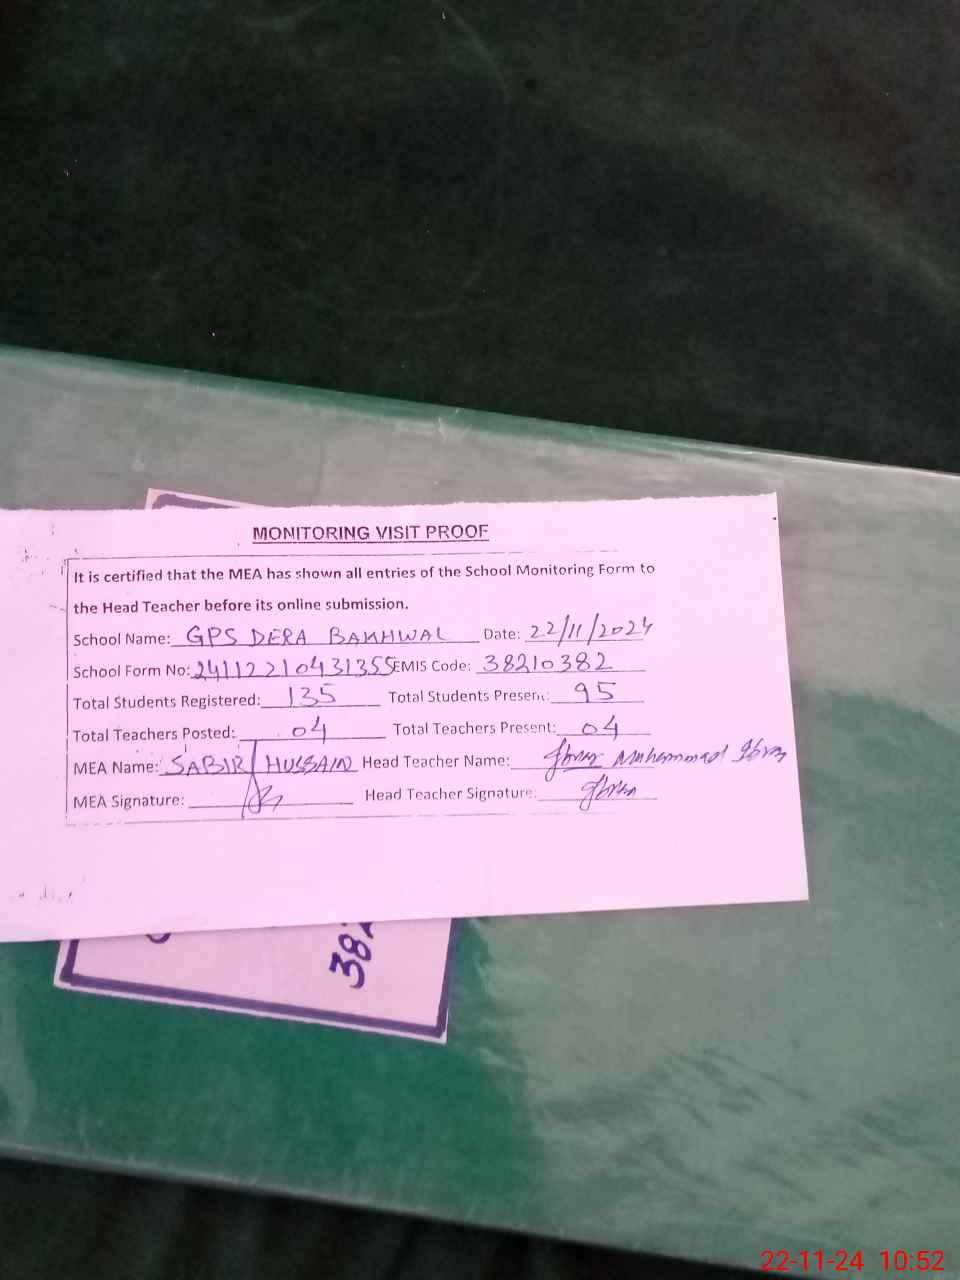 MONITORING VISIT PROOF
It is certified that the MEA has shown all entries of the School Monitoring Form to
the Head Teacher before its online submission.
School Name: GPS DERA BAKHWAL Date: 22/11/2024
School Form No: 24112210431355 EMIS Code: 38210382
Total Students Registered: 135 Total Students Present: 95
Total Teachers Posted: 04 Total Teachers Present: 04
MEA Name: SABIR HUSSAIN Head Teacher Name: Muhammad
MEA Signature: Head Teacher Signature:
382
22-11-24 10:52